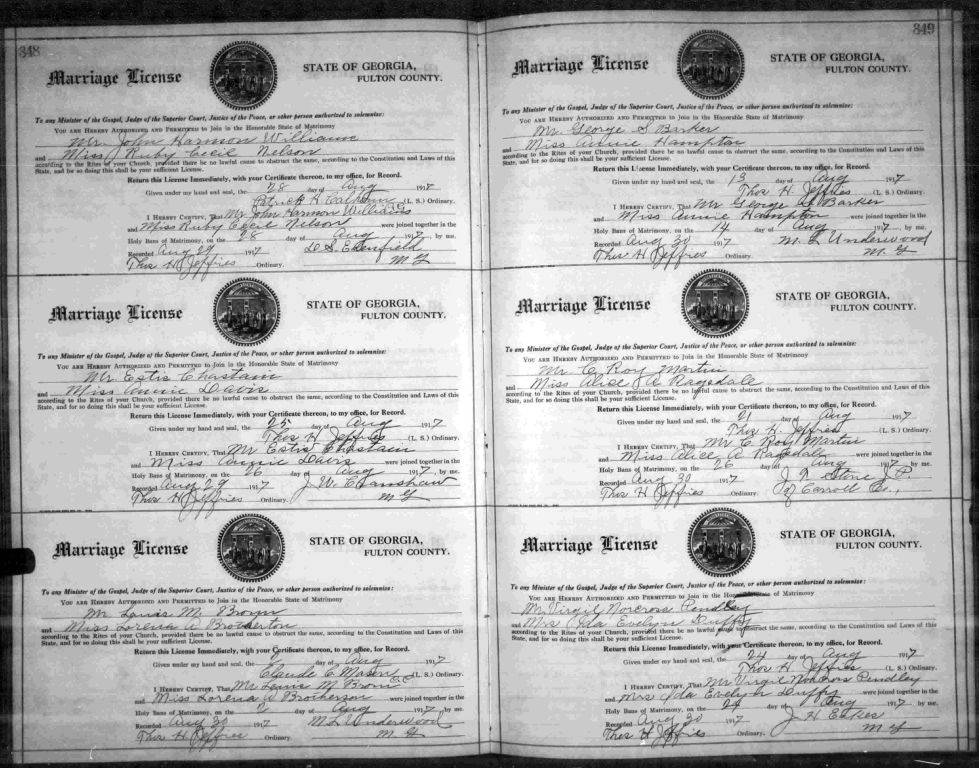 348
Marriage License
STATE OF GEORGIA,
FULTON COUNTY.
To any Minister of the Gospel, Judge of the Superior Court, Justice of the Peace, or other person authorized to solemnize:
YOU ARE HEREBY AUTHORIZED AND PERMITTED to Join in the Honorable State of Matrimony
Mr. John Harmon Williams
and Miss Ruby Cecil Nelson
according to the Rites of your Church, provided there be no lawful cause to obstruct the same, according to the Constitution and Laws of this
State, and for so doing this shall be your sufficient License.
Return this License Immediately, with your Certificate thereon, to my office, for Record.
Given under my hand and seal, the 28 day of Aug 1917
Patrick H Calhoun (L. S.) Ordinary.
I HEREBY CERTIFY, That Mr John Harmon Williams
and Miss Ruby Cecil Nelson were joined together in the
Holy Bans of Matrimony, on the 28 day of Aug 1917, by me.
Recorded Aug 29 1917 D. S. Edenfield
Thos H Jeffries Ordinary. M G
Marriage License
STATE OF GEORGIA,
FULTON COUNTY.
To any Minister of the Gospel, Judge of the Superior Court, Justice of the Peace, or other person authorized to solemnize:
YOU ARE HEREBY AUTHORIZED AND PERMITTED to Join in the Honorable State of Matrimony
Mr Estis Chastain
and Miss Annie Davis
according to the Rites of your Church, provided there be no lawful cause to obstruct the same, according to the Constitution and Laws of this
State, and for so doing this shall be your sufficient License.
Return this License Immediately, with your Certificate thereon, to my office, for Record.
Given under my hand and seal, the 25 day of Aug 1917
Thos H Jeffries (L. S.) Ordinary.
I HEREBY CERTIFY, That Mr Estis Chastain
and Miss Annie Davis were joined together in the
Holy Bans of Matrimony, on the 26 day of Aug 1917, by me.
Recorded Aug 29 1917 J. W.
Thos H Jeffries Ordinary. M G
Marriage License
STATE OF GEORGIA,
FULTON COUNTY.
To any Minister of the Gospel, Judge of the Superior Court, Justice of the Peace, or other person authorized to solemnize:
YOU ARE HEREBY AUTHORIZED AND PERMITTED to Join in the Honorable State of Matrimony
Mr Louis M Brown
and Miss Lorena A Brotherton
according to the Rites of your Church, provided there be no lawful cause to obstruct the same, according to the Constitution and Laws of this
State, and for so doing this shall be your sufficient License.
Return this License Immediately, with your Certificate thereon, to my office, for Record.
Given under my hand and seal, the day of Aug 1917
Claude C Mason (L. S.) Ordinary.
I HEREBY CERTIFY, That Mr Louis M Brown
and Miss Lorena A Brotherson were joined together in the
Holy Bans of Matrimony, on the day of Aug 1917, by me.
Recorded Aug 30 1917 M. L. Underwood
Thos H Jeffries Ordinary. M. G
349
Marriage License
STATE OF GEORGIA,
FULTON COUNTY.
To any Minister of the Gospel, Judge of the Superior Court, Justice of the Peace, or other person authorized to solemnize:
YOU ARE HEREBY AUTHORIZED AND PERMITTED to Join in the Honorable State of Matrimony
Mr. George S Barker
and Miss Annie Hampton
according to the Rites of your Church, provided there be no lawful cause to obstruct the same, according to the Constitution and Laws of this
State, and for so doing this shall be your sufficient License.
Return this License Immediately, with your Certificate thereon, to my office, for Record.
Given under my hand and seal, the 13 day of Aug 1917
Thos H. Jeffries (L. S.) Ordinary.
I HEREBY CERTIFY, That Mr George S Barker
and Miss Annie Hampton were joined together in the
Holy Bans of Matrimony, on the 14 day of Aug 1917, by me.
Recorded Aug 30 1917 M. L Underwood
Thos H Jeffries Ordinary. M. G
Marriage License
STATE OF GEORGIA,
FULTON COUNTY.
To any Minister of the Gospel, Judge of the Superior Court, Justice of the Peace, or other person authorized to solemnize:
YOU ARE HEREBY AUTHORIZED AND PERMITTED to Join in the Honorable State of Matrimony
Mr C Roy Martin
and Miss Alice A Ragsdale
according to the Rites of your Church, provided there be no lawful cause to obstruct the same, according to the Constitution and Laws of this
State, and for so doing this shall be your sufficient License.
Return this License Immediately, with your Certificate thereon, to my office, for Record.
Given under my hand and seal, the 21 day of Aug 1917
Thos H. Jeffries (L. S.) Ordinary.
I HEREBY CERTIFY, That Mr C Roy Martin
and Miss Alice A Ragsdale were joined together in the
Holy Bans of Matrimony, on the 26 day of Aug 1917, by me.
Recorded Aug 30 1917 Stone J. P.
Thos H Jeffries Ordinary. of Carroll Co.,
Marriage License
STATE OF GEORGIA,
FULTON COUNTY.
To any Minister of the Gospel, Judge of the Superior Court, Justice of the Peace, or other person authorized to solemnize:
YOU ARE HEREBY AUTHORIZED AND PERMITTED to Join in the Honorable State of Matrimony
Mr Virgil Norcross Pendley
and Mrs Ida Evelyn Duffy
according to the Rites of your Church, provided there be no lawful cause to obstruct the same, according to the Constitution and Laws of this
State, and for so doing this shall be your sufficient License.
Return this License Immediately, with your Certificate thereon, to my office, for Record.
Given under my hand and seal, the 24 day of Aug 1917
Thos H Jeffries (L. S.) Ordinary.
I HEREBY CERTIFY, That Mr Virgil Norcross Pendley
and Mrs Ida Evelyn Duffy were joined together in the
Holy Bans of Matrimony, on the 24 day of Aug 1917, by me.
Recorded Aug 30 1917 J H Eakes
Thos H Jeffries Ordinary. M G